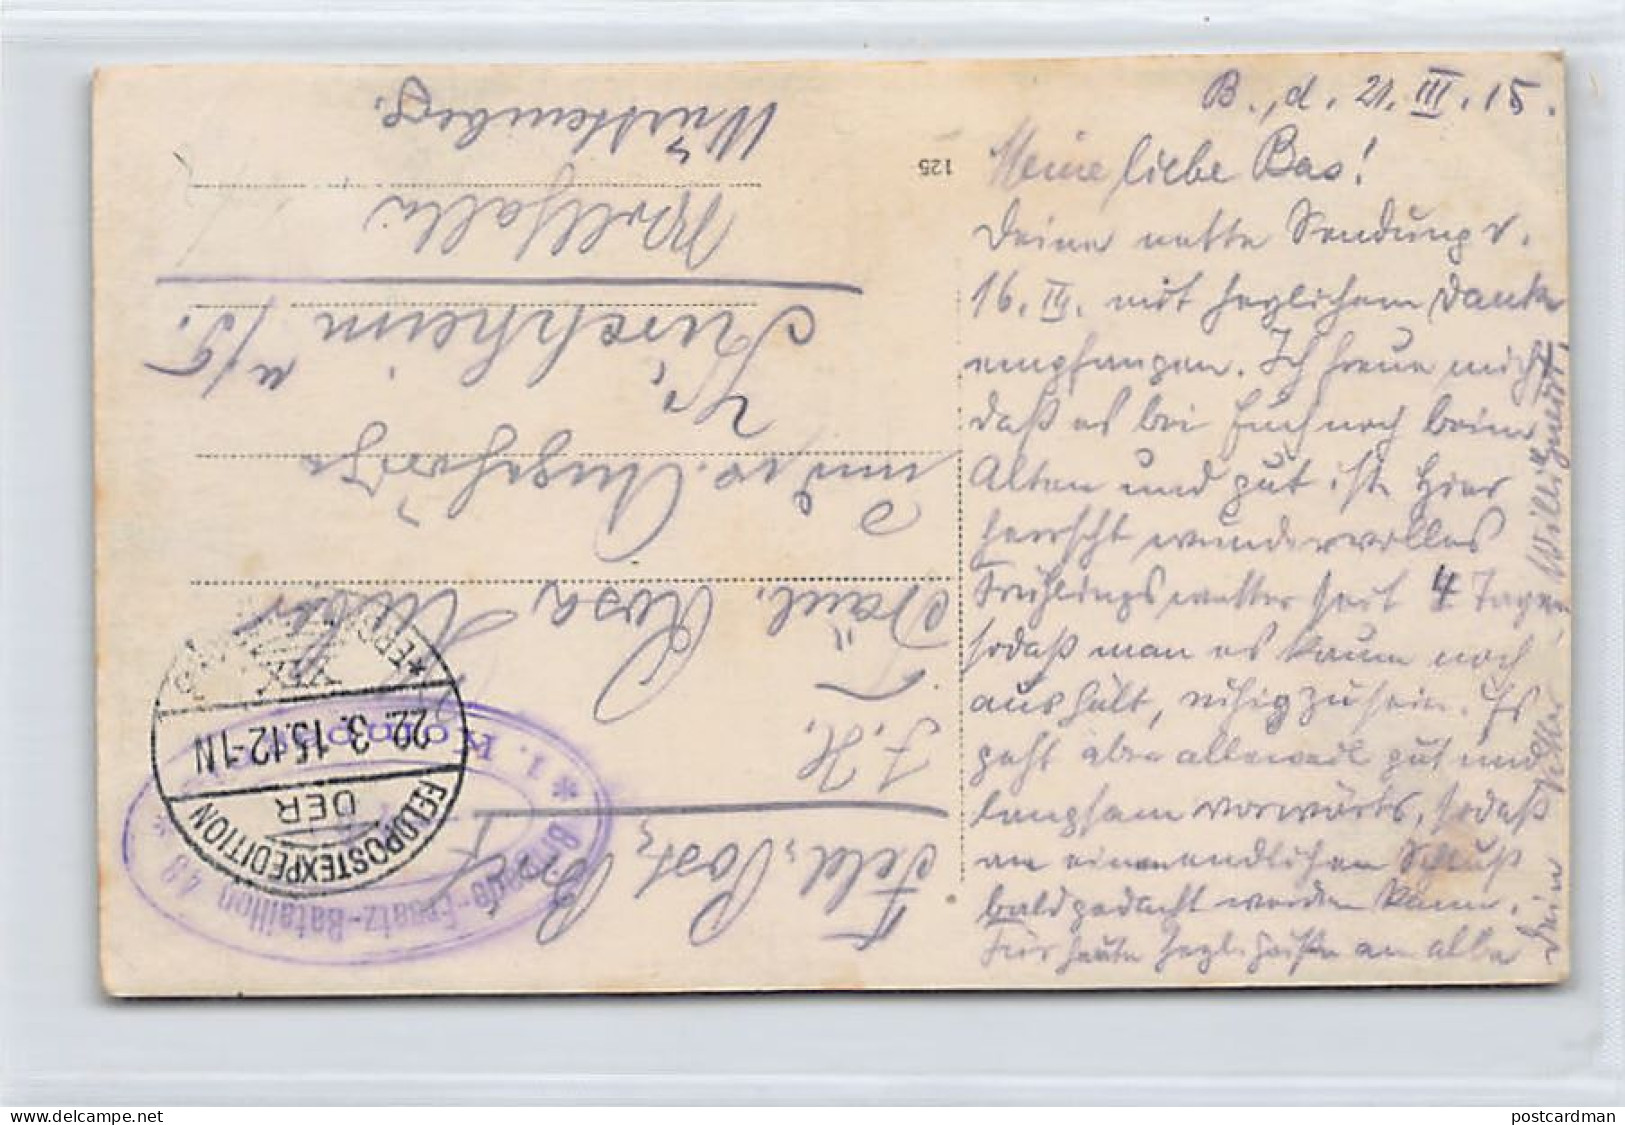 B., d. 21. III. 15.
Meine liebe Bas!
Deine nette Sendung v.
16. III. mit herzlichem Danke
empfangen. Ich freue mich
daß es bei Euch noch beim
Alten und gut ist. Hier
herrscht wundervolles
Frühlingswetter seit 4 Tagen
sodaß man es kaum noch
aushält, ruhig zu sein. Es
geht aber alleweil gut und
langsam vorwärts, sodaß
an einen endlichen Schluß
bald gedacht werden kann.
Für heute herzl. Grüße an alle
Dein Vetter Willi
125
Feld-Post Brief
Fräul. Rosa
und w. Angehörige
Kirchheim u/T.
Württemberg.
FELDPOSTEXPEDITION
DER
22.3.15.12-1N
* 1. Kompagnie *
Brigade-Ersatz-Bataillon 48
postcardman
www.delcampe.net